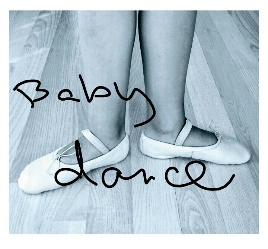 Baby
dance